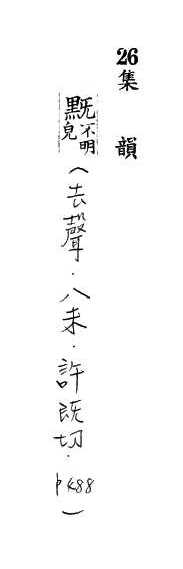 26 集 韻
不明皃(去聲.八未.許既切.p488)